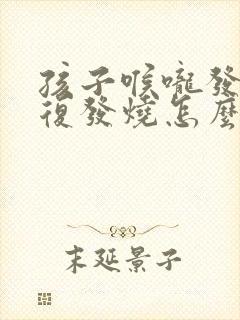 孩子喉嚨發
復發燒怎麼
末延景子